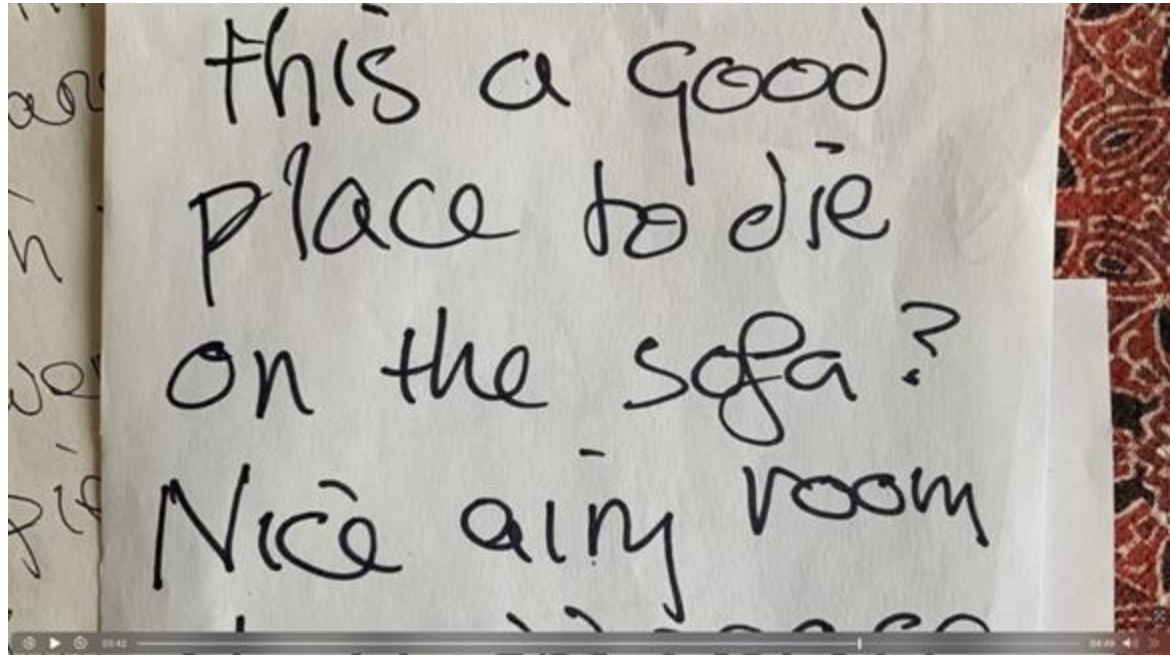 this a good
place to die
on the sofa?
Nice airy room
03:42
04:49